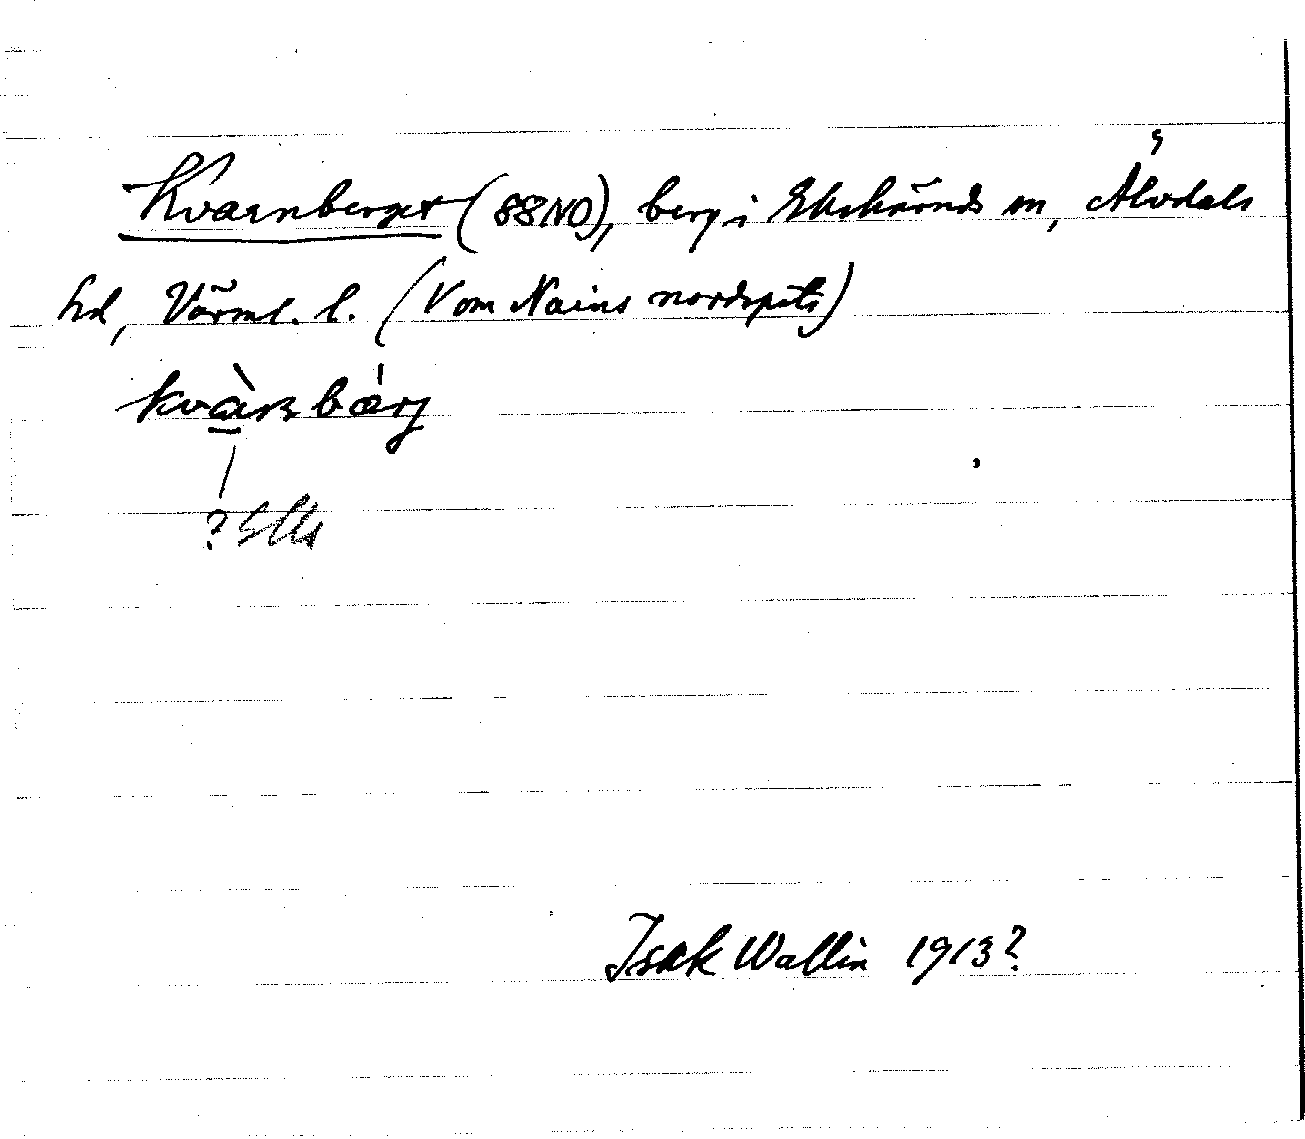 Kvarnberget (88NO), berg i Ekshärads sn, Älvdals
hd, Värml. l. (V om Nains nordspets)
kvàrnbǽrj
?
Isak Wallin 1913?